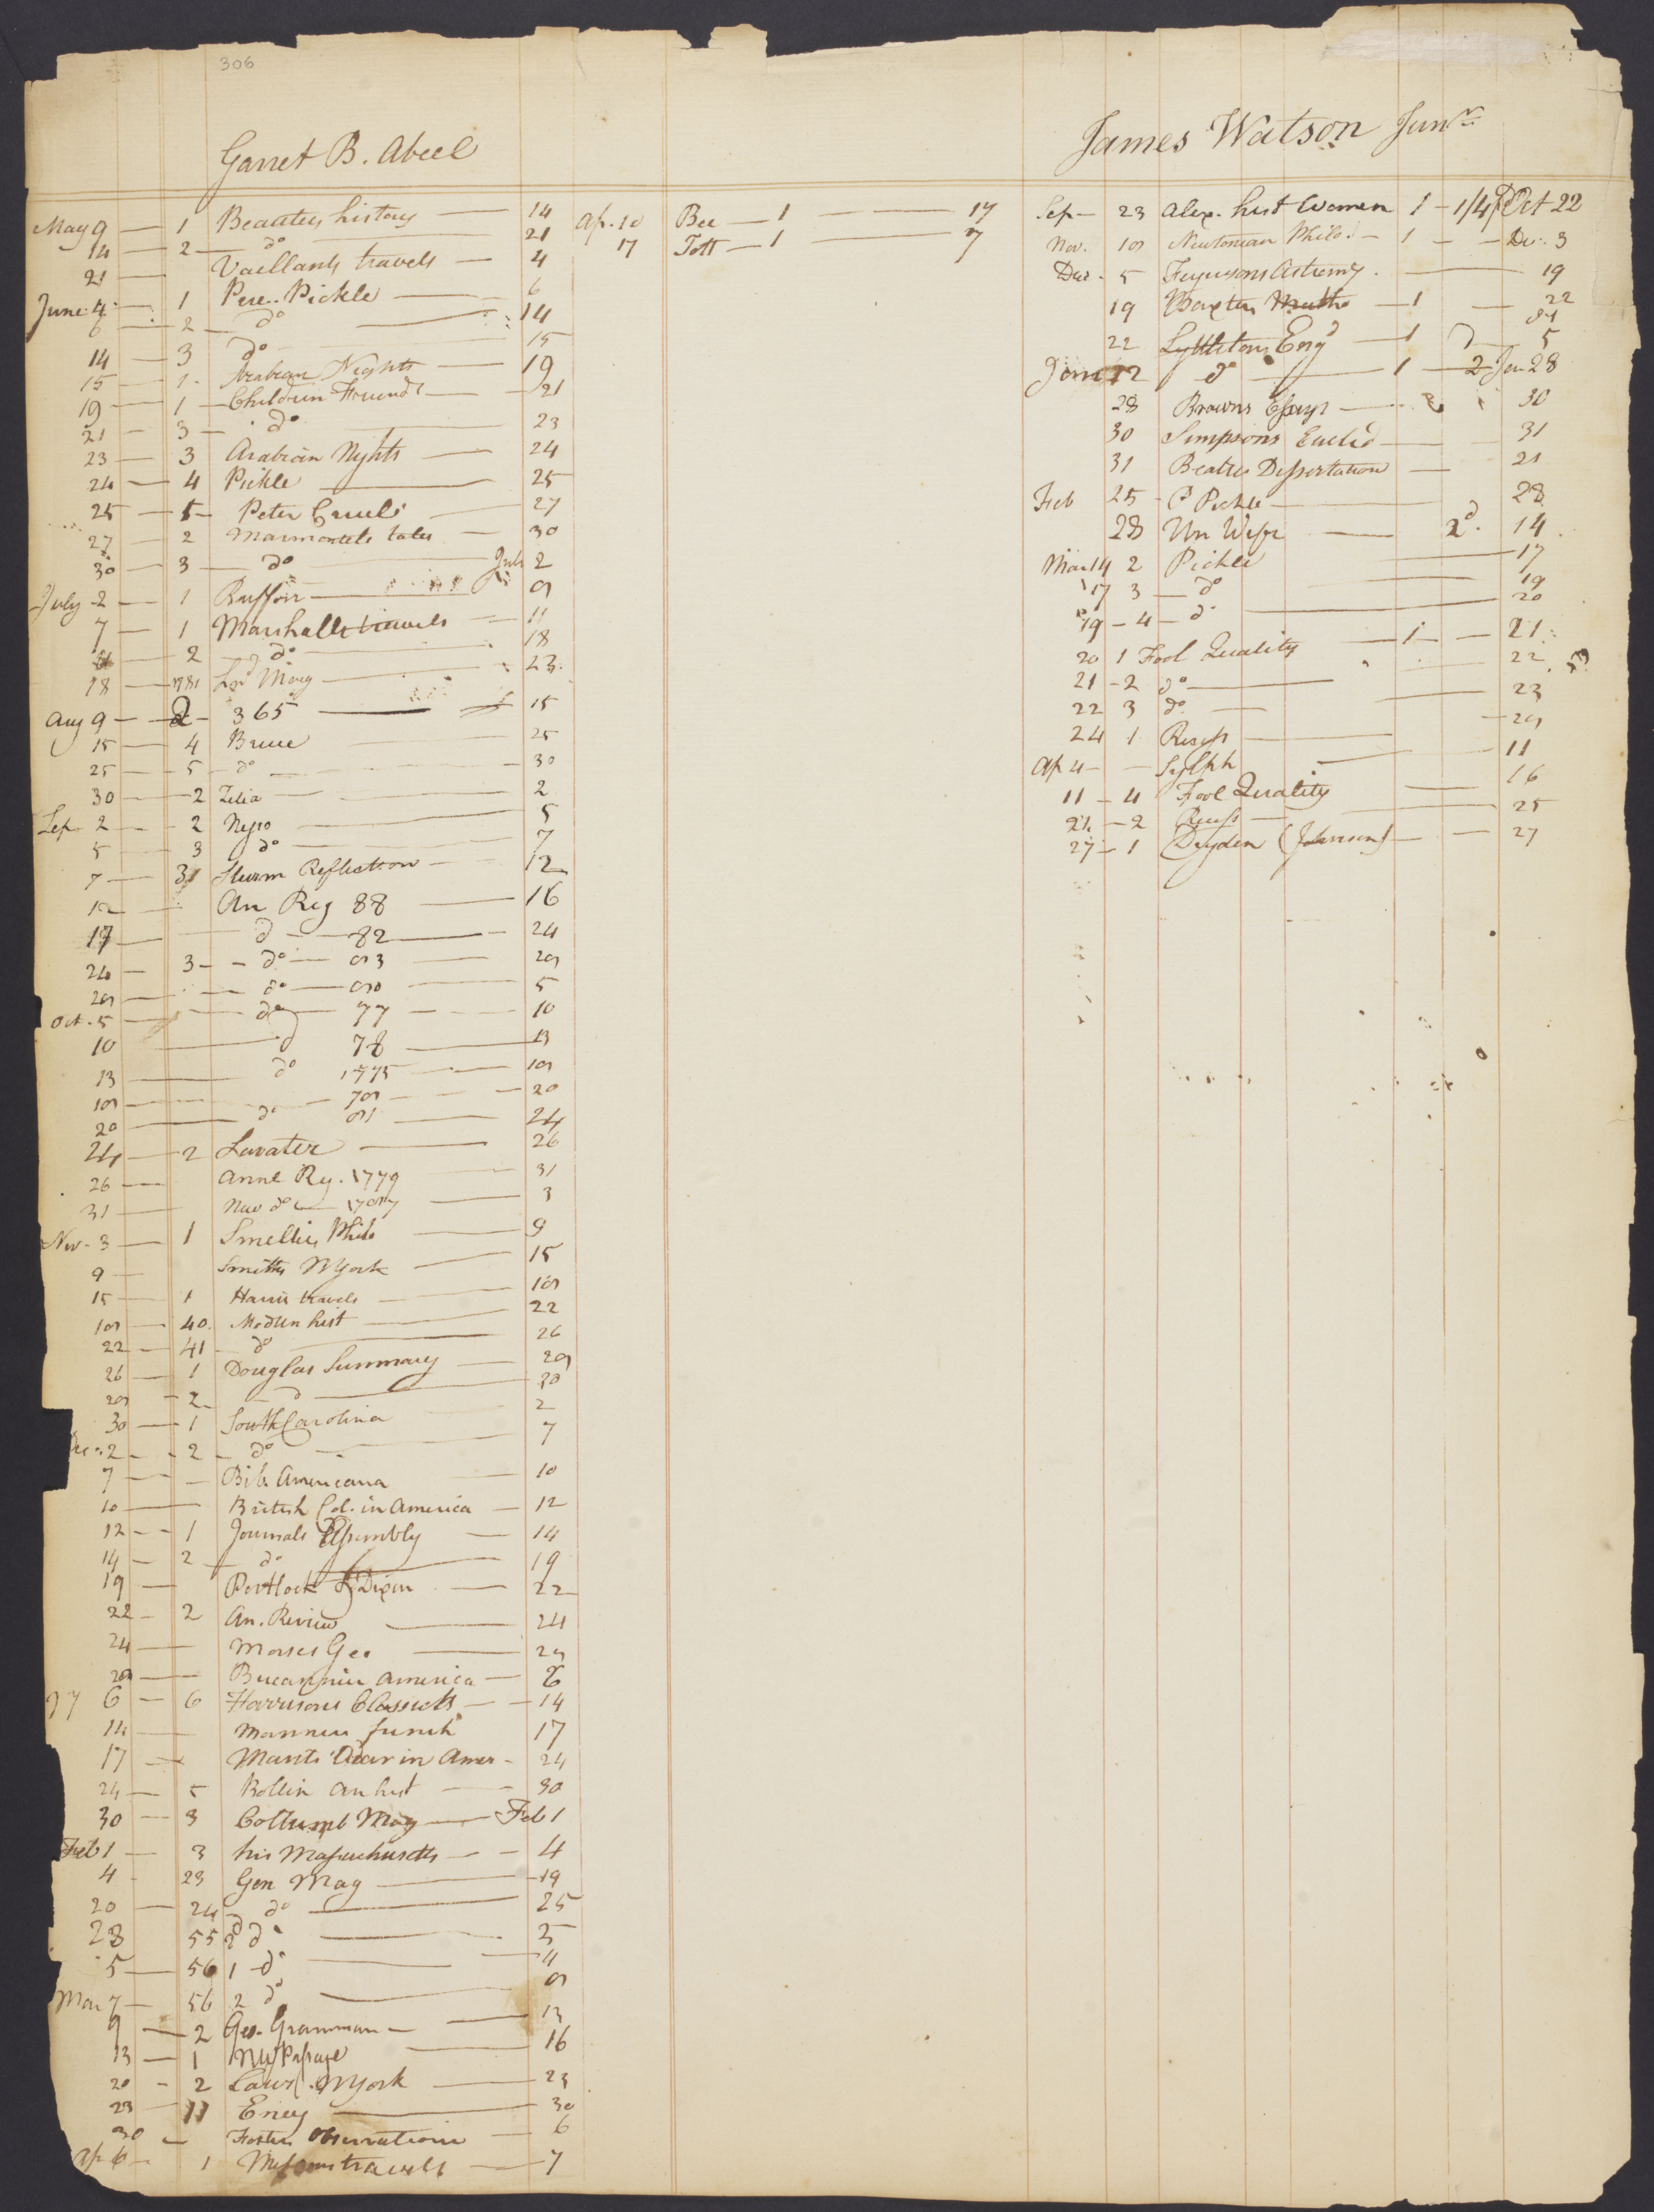 306
Garret B. Abeel
May 9 — 1 Beauties history — 14
14 — 2 — do — 21
21 — Vaillants travels — 4
June 4 — 1 Pere. Pickle — 6
6 — 2 — do — 14
14 — 3 do — 15
15 — 1 Arabian Nights — 19
19 — 1 — Children Friend — 21
21 — 3 — do — 23
23 — 3 Arabian Nyhts — 24
24 — 4 Pickle — 25
25 — Peter — 27
27 — 2 Marmontels tales — 30
30 — 3 — do — July 2
July 2 — 1 Buffon — 9
7 — 1 Marshalls travels — 11
2 — do — 18
18 — 1781 Lon Mag — 23
Aug 9 — 2 — 365 — 15
15 — 4 Bruce — 25
25 — 5 — do — 30
30 — 2 Zelia — 2
Sep. 2 — 2 Negro — 5
5 — 3 do — 7
7 — 31 Sturm Reflection — 12
12 — An Reg 88 — 16
17 — d — 82 — 24
24 — 3 — do — 93 — 29
29 — do — 90 — 5
Oct. 5 — do — 77 — 10
10 — d 78 — 13
13 — do 1775 — 19
19 — 79 — 20
20 — do 91 — 24
24 — 2 Lavater — 26
26 — Annl Reg. 1779 — 31
31 — New do — 1787 — 3
Nov. 3 — 1 Smellies Philo — 9
9 — Smiths NYork — 15
15 — 1 Harris travels — 19
19 — 40. Modern hist — 22
22 — 41 — do — 26
26 — 1 Douglas Summary — 29
29 — 2 — d — 30
30 — 1 South Carolina — 2
Dec. 2 — 2 — do — 7
7 — Bib. Americana — 10
10 — British Col. in America — 12
12 — 1 Journals Assembly — 14
14 — 2 — do — 19
19 — Portlock & Dixon — 22
22 — 2 An. Review — 24
24 — Morses Geo — 29
29 — Bucanniers America — 6
97 6 — 6 Harrisons Classicks — 14
14 — Manners french 17
17 — Mants War in Amer — 24
24 — 5 Rollin An hist — 30
30 — 3 Collumb Mag — Feb 1
Feb 1 — 3 his Massachusetts — 4
4 — 23 Gen Mag — 19
20 — 24 — do — 25
28 55 2 do — 5
5 — 56 1 do — 7
Mar 7 — 56 2 do — 9
9 — 2 Geo. Gramman — 13
13 — 1 NW Passage — 16
20 — 2 Laws NYork — 23
23 — 11 Ency — 30
30 — Fosters Observations — 6
Ap 6 — 1 travels — 7
Ap. 10 Bee — 1 — 17
17 Tott — 1 — 7
James Watson Junr
Sep — 23 Alex. hist Women 1 — 1/4 Oct 22
Nov. 19 Newtonian Philo. — 1 — Dec. 3
Dec. 5 Fergusons Astromy. — 19
19 Baxters — 1 — 22
22 Lyttletons Engd — 1 5
Jan 12 do — 1 — 2 Jan 28
28 Browns Essays — 30
30 Simpsons Euclid — 31
31 Beaties Dissertation — 21
Feb 25 P Pickle — 28
28 Un Wife — 2d. 14
Mar 14 2 Pickle — 17
17 3 — do — 19
19 — 4 — do — 20
20 1 Fool Quality — 1 — 21
21 — 2 do — 22
22 3 do — 23
24 1 Recess — 29
Ap 4 — Sylph — 11
11 — 4 Fool Quality — 16
21 — 2 Recess — 25
27 — 1 Dryden (Johnson) — 27